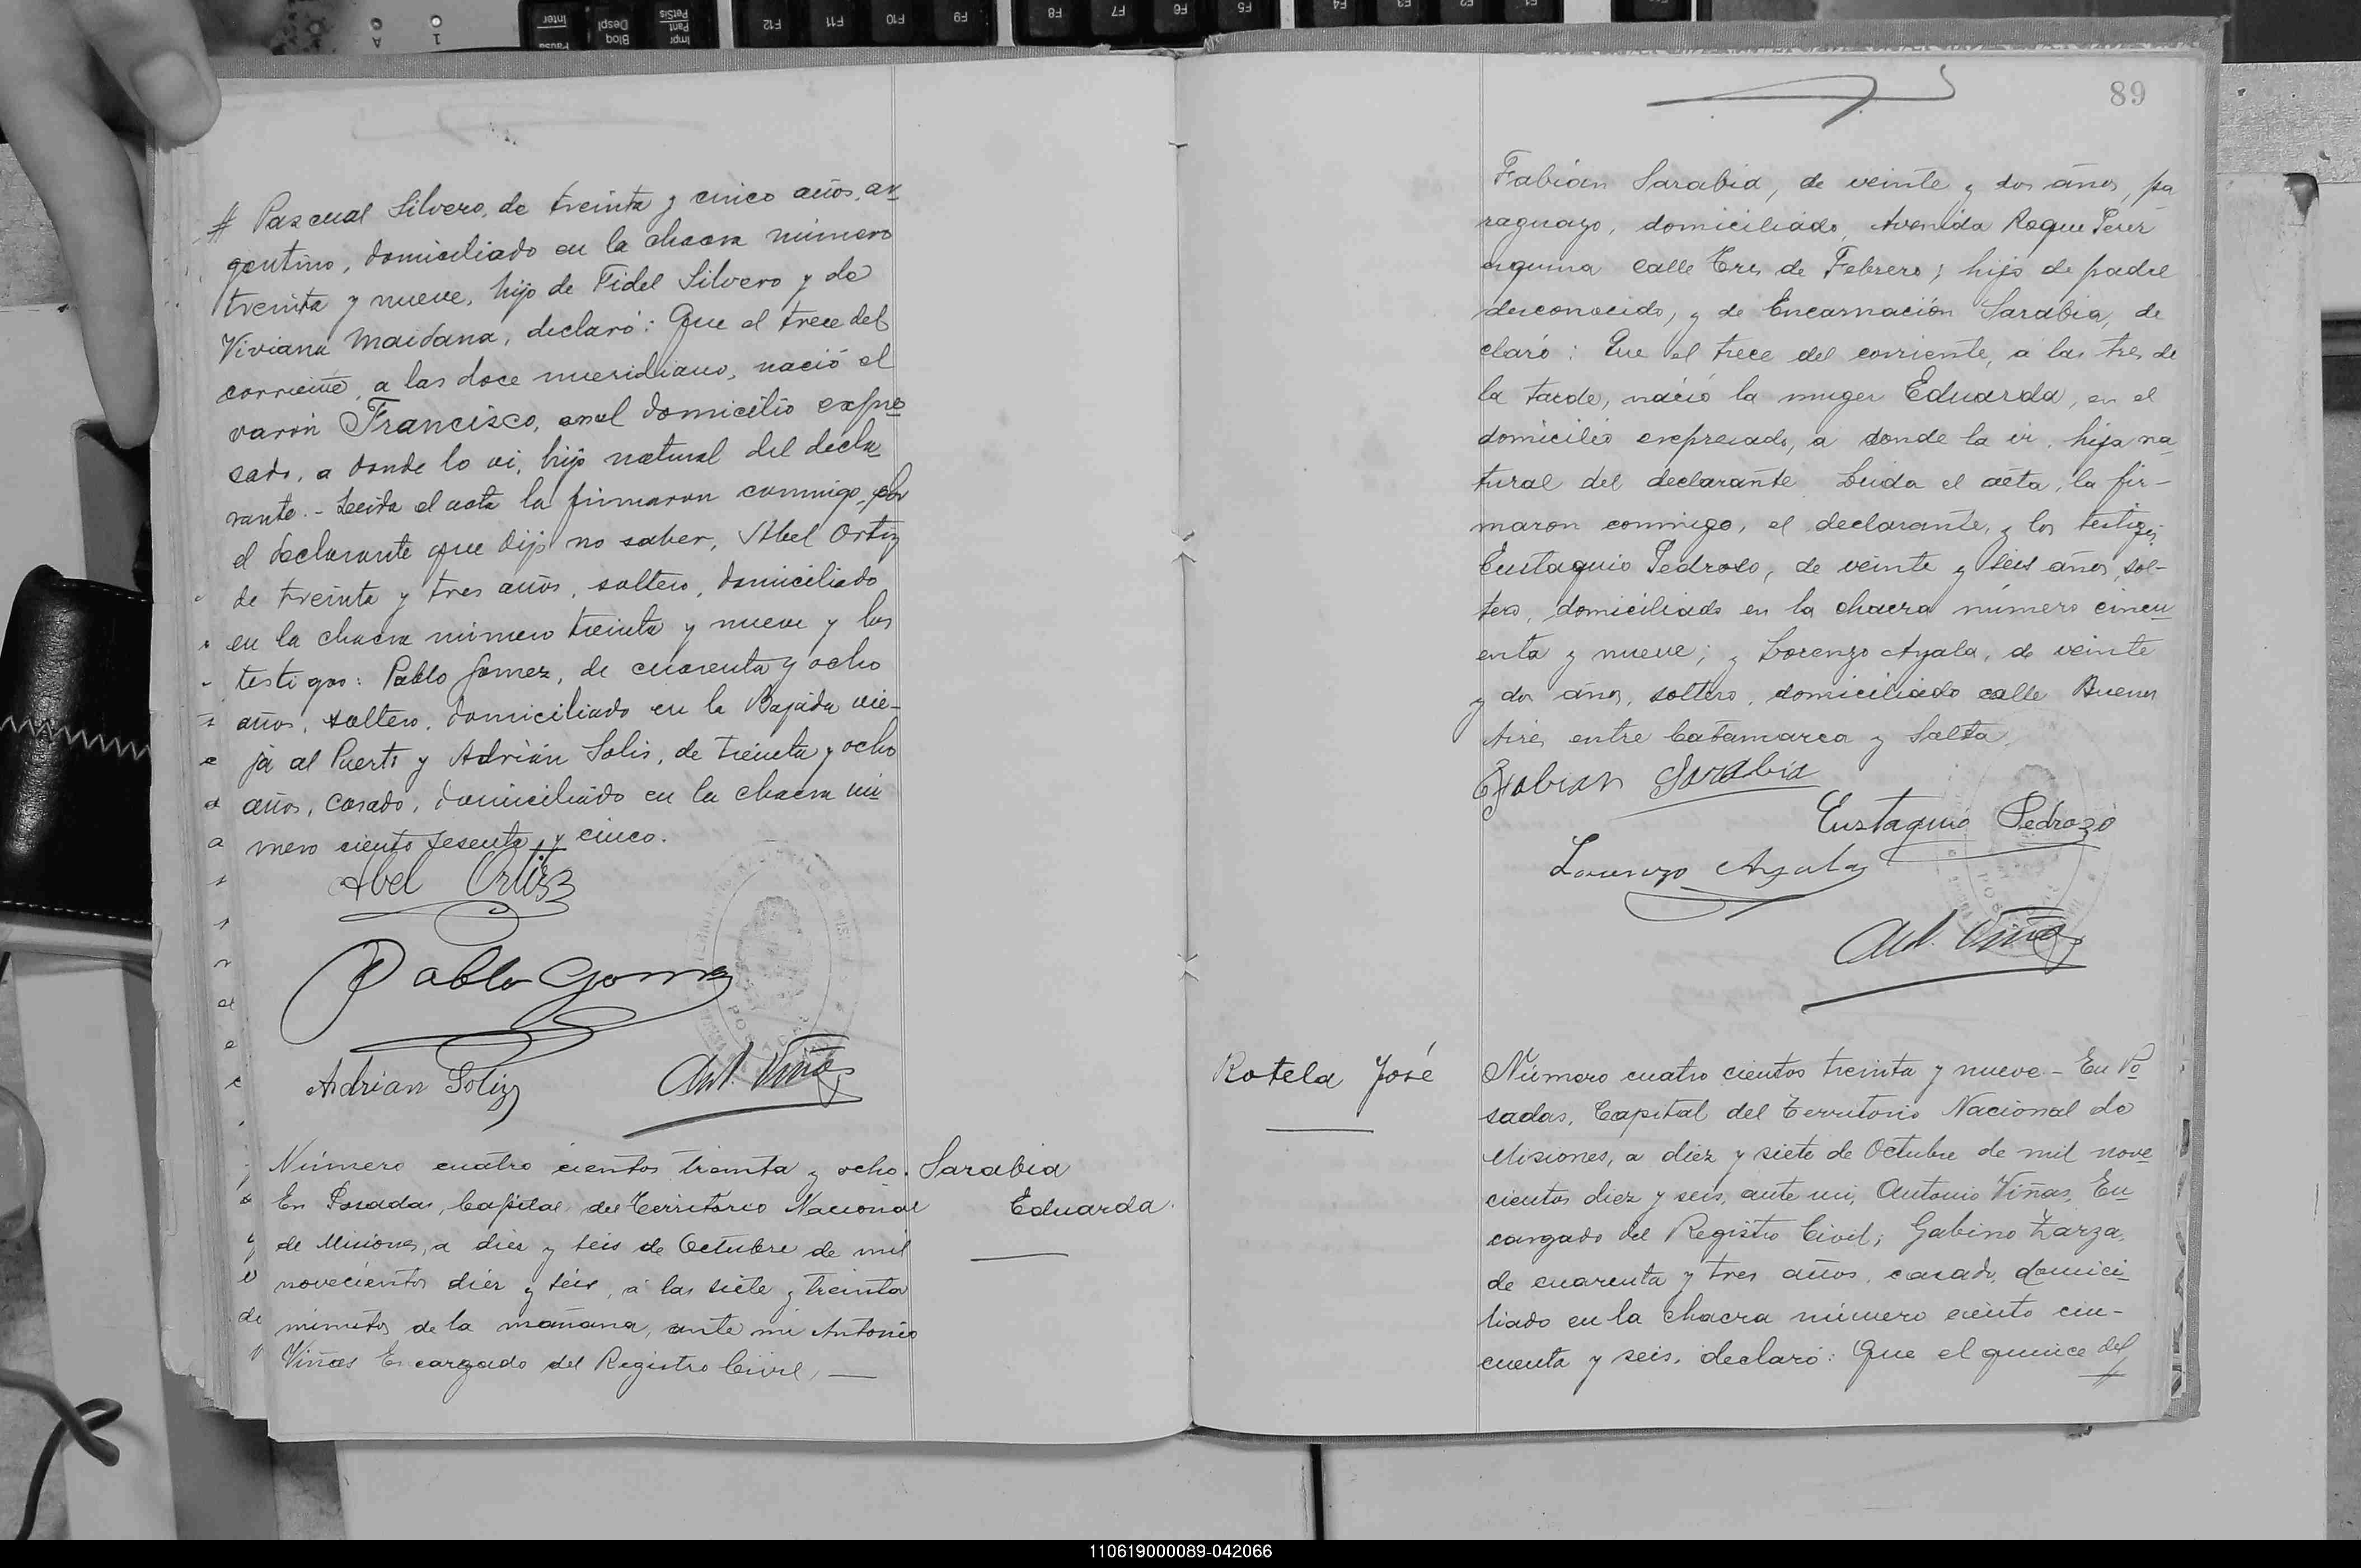 # Pascual Silvero, de treinta y cinco años, ar
gentino, domiciliado en la chacra número
treinta y nueve, hijo de Fidel Silvero y de
Viviana Maidana, declaró: Que el trece del
corriente, a las doce meridiano, nació el
varón Francisco, en el domicilio expre
sado, a donde lo vi, hijo natural del decla
rante. - Leida el acta la firmaron conmigo, por
el declarante que dijo no saber, Abel Ortiz
de treinta y tres años, soltero, domiciliado
en la chacra número treinta y nueve y los
testigos: Pablo Gomez, de cuarenta y ocho
años, soltero, domiciliado en la Bajada vie-
ja al Puerto y Adrián Solis, de treinta y ocho
años, casado, domiciliado en la chacra nú
mero ciento sesenta y cinco.
Abel Ortiz
Pablo Gomez
Adrian Soliz
Ant. Viñas
Número cuatro cientos treinta y ocho.
En Posadas, Capital del Territorio Nacional
de Misiones, a diez y seis de Octubre de mil
novecientos diez y seis, a las siete y treinta
minutos de la mañana, ante mi Antonio
Viñas Encargado del Registro Civil, —
Sarabia
Eduarda.
89
Fabián Sarabia, de veinte y dos años, pa
raguayo, domiciliado, Avenida Roque Perez
esquina calle Tres de Febrero; hijo de padre
desconocido, y de Encarnación Sarabia, de
claró: Que el trece del corriente, a las tres de
la tarde, nació la muger Eduarda, en el
domicilio expresado, a donde la vi, hija na
tural del declarante. Leida el acta, la fir-
maron conmigo, el declarante, y los testigos
Eustaquio Pedrozo, de veinte y seis años, sol-
tero, domiciliado en la chacra número cincu
enta y nueve; y Lorenzo Ayala, de veinte
y dos años, soltero, domiciliado calle Buenos
Aires entre Catamarca y Salta.
Fabian Sarabia
Eustaquio Pedrozo
Lorenzo Ayala
Ant. Viñas
Rotela José
Número cuatro cientos treinta y nueve - En Po
sadas, Capital del Territorio Nacional de
Misiones, a diez y siete de Octubre de mil nove
cientos diez y seis, ante mi, Antonio Viñas, En
cargado del Registro Civil; Gabino Zarza,
de cuarenta y tres años, casado, domici
liado en la chacra número ciento cin-
cuenta y seis, declaró: Que el quince del
110619000089-042066